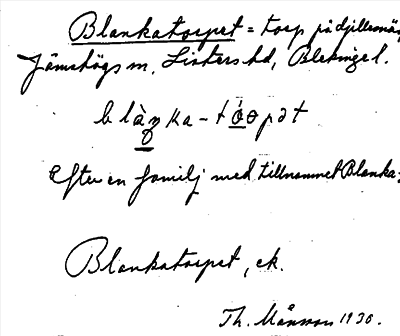 Blankatorpet = torp på djillesmåv
Jämshögs sn, Listers hd, Blekinge l.
blàŋka-tóopət
Efter en familj med tillnamnet Blanka.
Blankatorpet, ek.
Th. Månsson 1930.